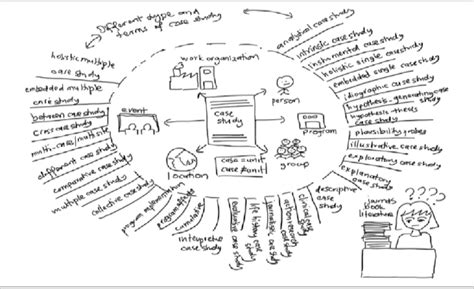 Different type and
terms of case study
holistic multiple
case study
embedded multiple
case study
between case study
cross case study
multi-case/multisite
different case study
comparative case study
multiple case study
collective case study
program implementation
program effects
cumulative
interpretive
case study
evaluative case study
life history case study
journalistic case study
action research
case study
clinical case study
descriptive
case
study
explanatory
case study
exploratory case study
illustrative case study
plausibility probes
hypothesis-thesis
case study
hypothesis-generating case
study
idiographic case study
embedded single case study
holistic single case study
instrumental case study
intrinsic case study
analytical case study
work organization
person
event
case
study
program
location
case = unit
case ≠ unit
group
journals
book
literature
???